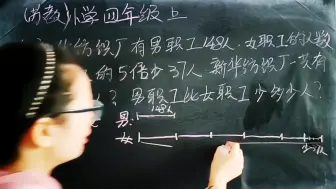 (苏教)小学四年级上
纺织厂有男职工148人,女职工的人数
的5倍少37人.新华纺织厂一共有
人?男职工比女职工少多少人?
148人
男:
女
37人